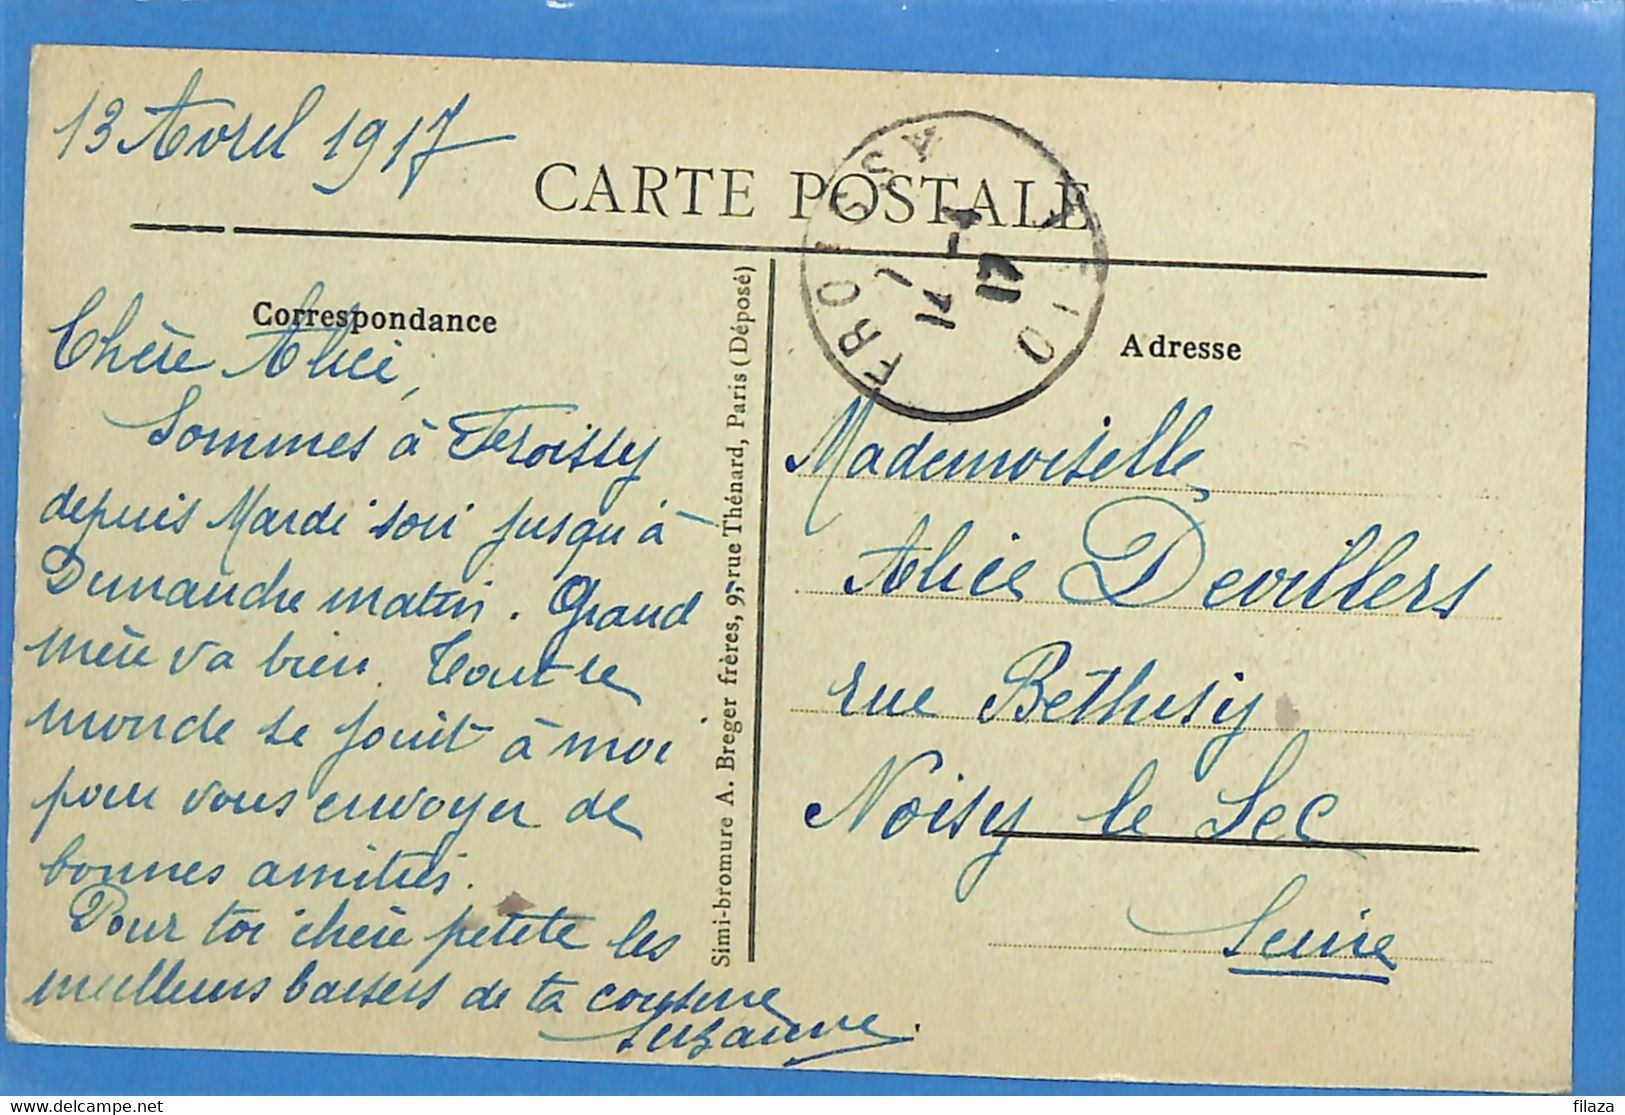 13 Avril 1917
CARTE POSTALE
Correspondance
Chère Alice,
Sommes à Froissy
depuis Mardi soir jusqu'à
Dimanche matin. Grand
mère va bien. Tout le
monde se joint à moi
pour vous envoyer de
bonnes amitiés.
Pour toi chère petite les
meilleurs baisers de ta cousine
Suzanne.
Simi-bromure A. Breger frères, 9, rue Thénard, Paris (Déposé)
FROISSY
OISE
14 -4
17
Adresse
Mademoiselle
Alice Devillers
rue Bethisy
Noisy le Sec
Seine
delcampe.net
filaza